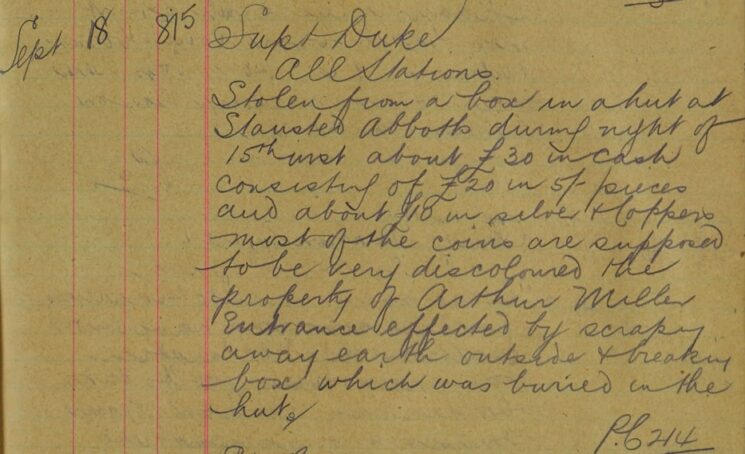 Sept 18 815 Supt Duke
All Stations.
Stolen from a box in a hut at
Stansted Abbotts during night of
15th inst about £30 in cash
consisting of £20 in 5/- pieces
and about £10 in silver & Coppers
most of the coins are supposed
to be very discoloured the
property of Arthur Miller
Entrance effected by scraping
away earth outside & breaking
box which was buried in the
hut.
P.C 214